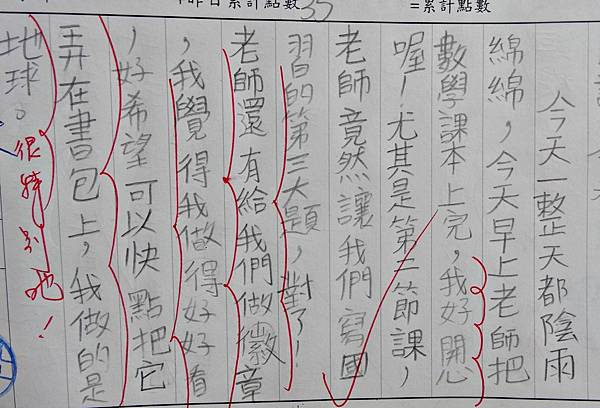 昨日累計點數 35 =累計點數
今天一整天都陰雨
綿綿，今天早上老師把
數學課本上完，我好開心
喔！尤其是第二節課，
老師竟然讓我們寫國
習的第三大題，對了！
老師還有給我們做徽章
，我覺得我做得好好看
，好希望可以快點把它
弄在書包上，我做的是
地球。
很特別也！